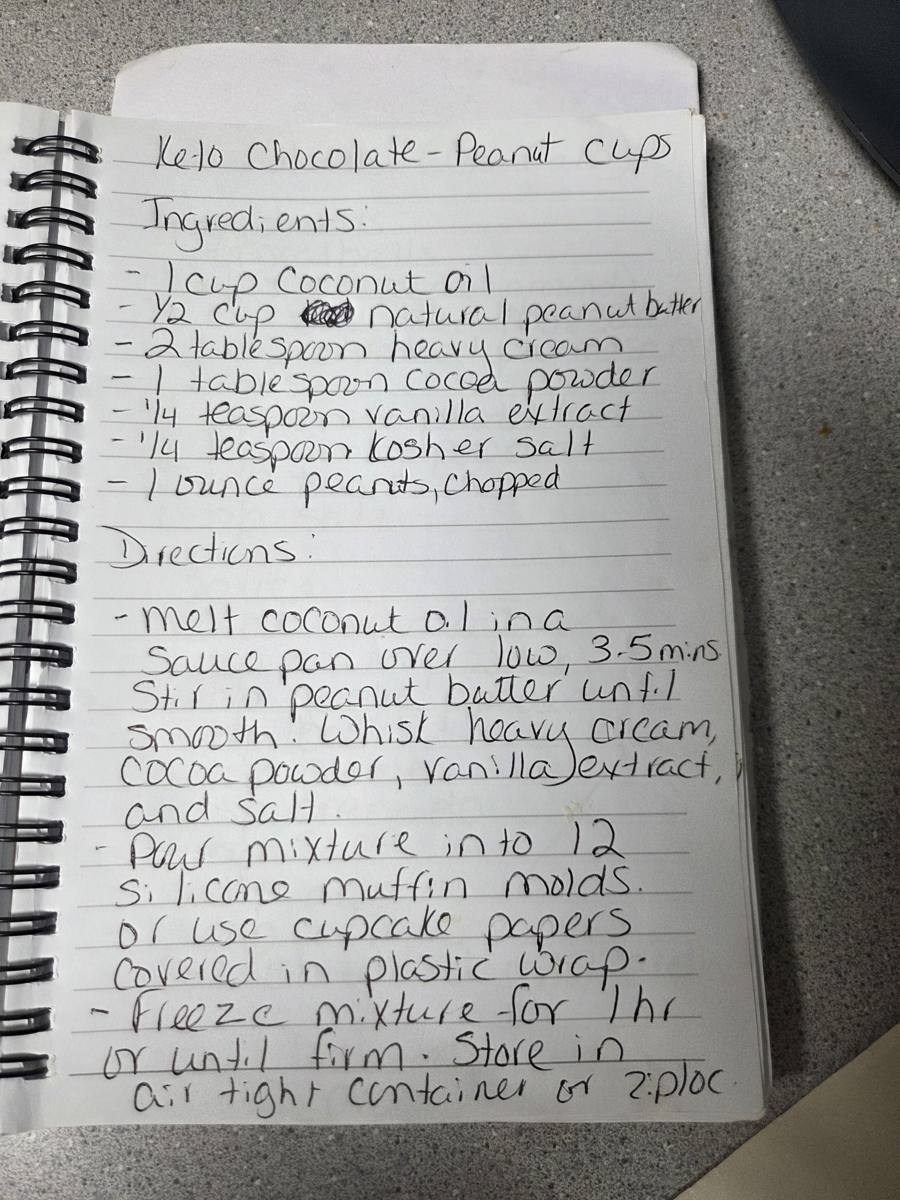 Keto Chocolate-Peanut Cups
Ingredients:
- 1 cup Coconut oil
- 1/2 cup natural peanut butter
- 2 tablespoon heavy cream
- 1 tablespoon cocoa powder
- 1/4 teaspoon vanilla extract
- 1/4 teaspoon kosher salt
- 1 ounce peanuts, chopped
Directions:
- Melt coconut oil in a
sauce pan over low, 3-5 mins
Stir in peanut butter until
smooth. Whisk heavy cream,
cocoa powder, vanilla extract,
and salt.
- Pour mixture into 12
silicone muffin molds.
or use cupcake papers
covered in plastic wrap.
- Freeze mixture for 1hr
or until firm. Store in
air tight container or ziploc